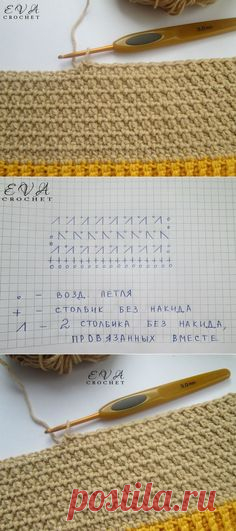 EVA
CROCHET
EVA
CROCHET
о - ВОЗД. ПЕТЛЯ
+ - СТОЛБИК БЕЗ НАКИДА
1 - 2 СТОЛБИКА БЕЗ НАКИДА,
ПРОВЯЗАННЫХ ВМЕСТЕ
EVA
CROCHET
postila.ru